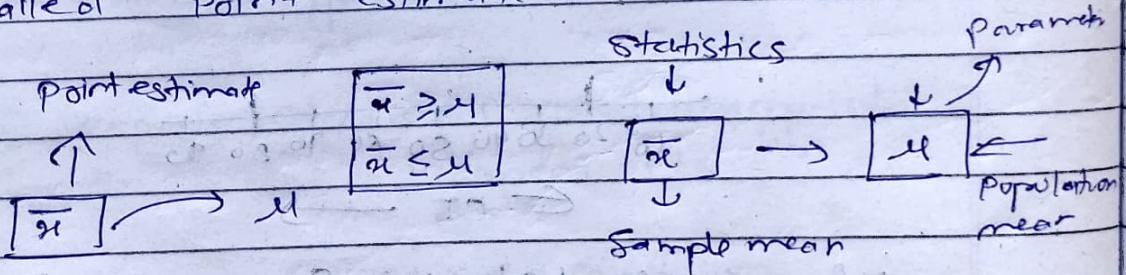 Point estimate
x̄ ≥ μ
x̄ ≤ μ
x̄ → μ
Statistics
x̄ → μ
Sample mean
Population
mean